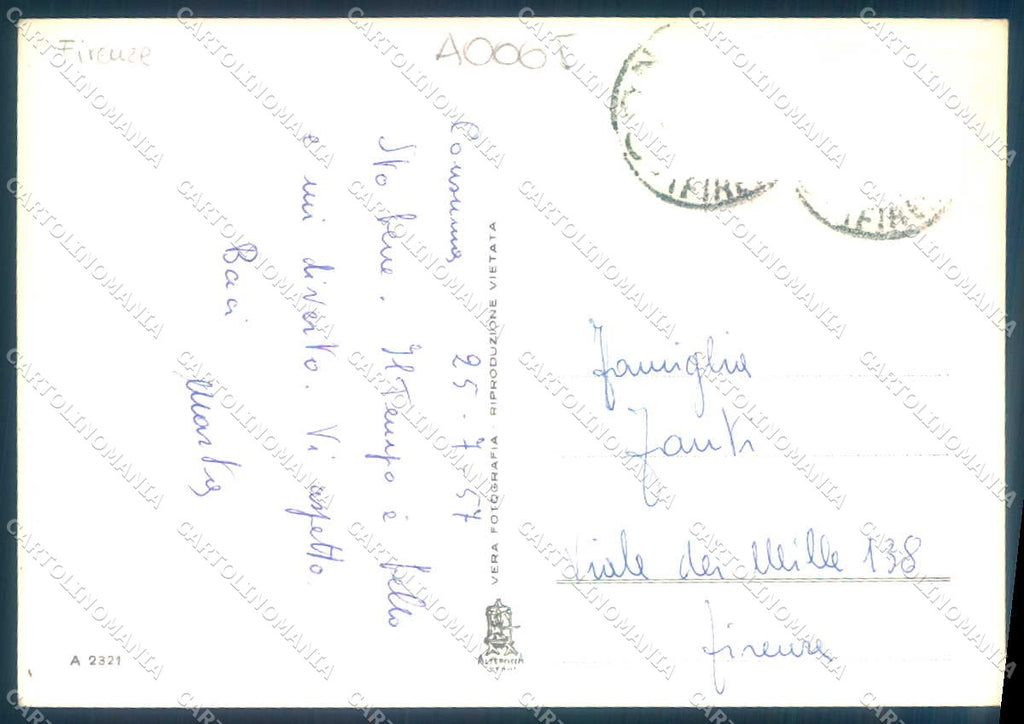 Firenze
A0065
Consuma 25-7-57
Sto bene. Il Tempo è bello
e mi diverto. Vi aspetto.
Baci
Marta
VERA FOTOGRAFIA - RIPRODUZIONE VIETATA
Famiglia
Zanti
Viale dei Mille 138
Firenze
A 2321
CARTOLINOMANIA